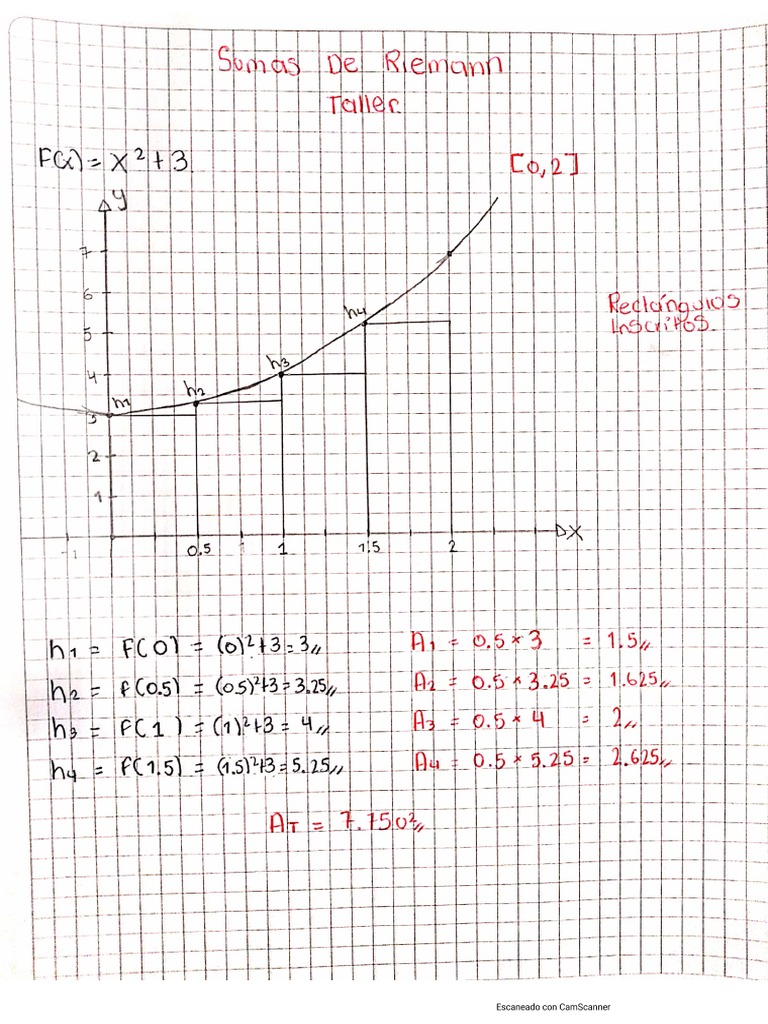 Sumas De Riemann
Taller.
F(x) = x² + 3
[0,2]
y
7
6
5
4
3
2
1
h1
h2
h3
h4
Rectángulos
Inscritos.
-1
0.5
1
1.5
2
x
h1 = F(0) = (0)²+3 = 3,,
A1 = 0.5 * 3 = 1.5,,
h2 = f(0.5) = (0.5)²+3 = 3.25,,
A2 = 0.5 * 3.25 = 1.625,,
h3 = F(1) = (1)²+3 = 4,,
A3 = 0.5 * 4 = 2,,
h4 = f(1.5) = (1.5)²+3 = 5.25,,
A4 = 0.5 * 5.25 = 2.625,,
AT = 7.75 U²,,
Escaneado con CamScanner